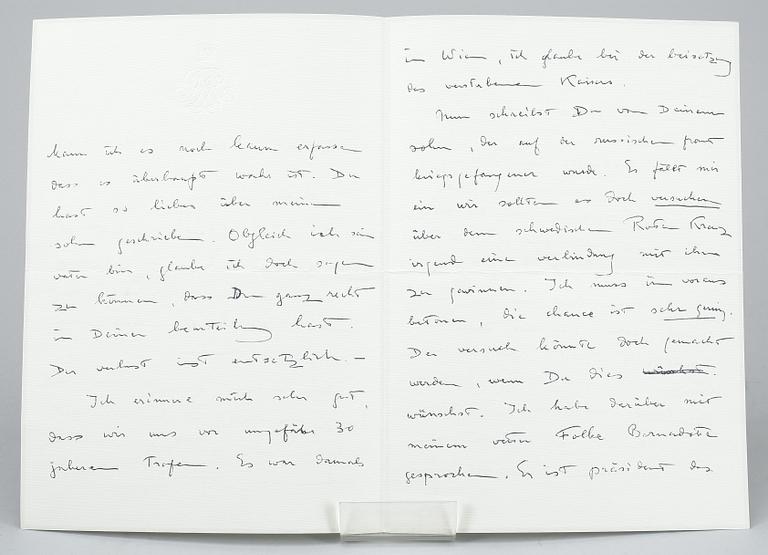 kann ich es noch kaum erfassen
dass es überhaupt wahr ist. Du
hast so lieben über meinen
sohn geschrieben. Obgleich ich sein
vater bin, glaube ich doch sagen
zu können, dass Du ganz recht
in Deiner beurteilung hast.
Der verlust ist entsetzlich. –
Ich erinnere mich sehr gut,
dass wir uns vor ungefähr 30
jahren trafen. Es war damals
in Wien, ich glaube bei der beisetzung
des verstorbenen Kaisers.
Nun schreibst Du von Deinem
sohn, der auf der russischen front
kriegsgefangener wurde. Es fällt mir
ein wir sollten es doch versuchen
über dem schwedischen Roten Kreuz
irgend eine verbindung mit ihm
zu gewinnen. Ich muss im voraus
betonen, die chance ist sehr gering.
Der versuch könnte doch gemacht
werden, wenn Du dies
wünschst. Ich habe darüber mit
meinem vetter Folke Bernadotte
gesprochen. Er ist präsident des